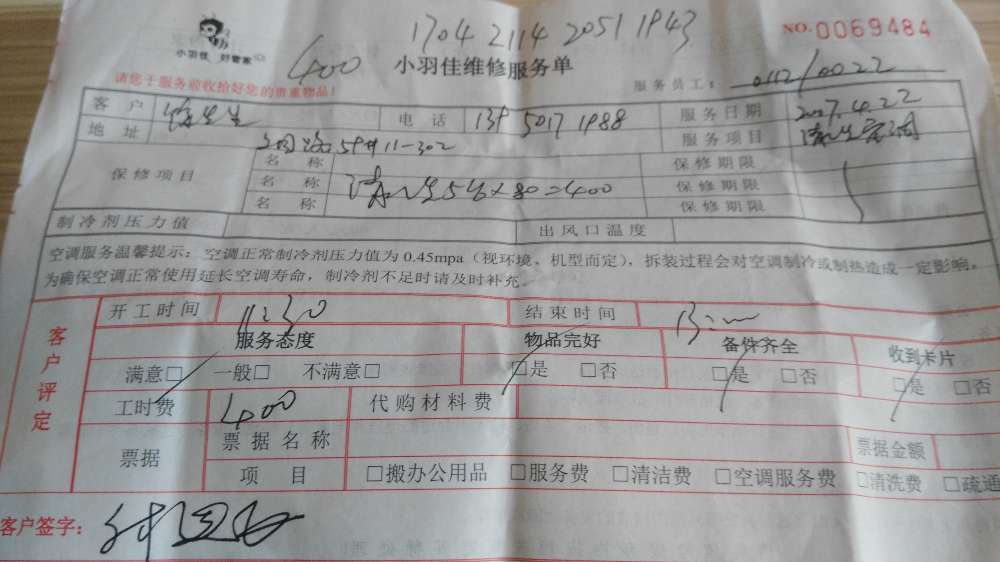 1704 2114 2051 1943
NO.0069484
小羽佳 好管家
400 小羽佳维修服务单
请您于服务前收拾好您的贵重物品!
服务员工: 0112/0022
客户 电话 服务日期
地址 59#11-302 服务项目 清洗空调
保修项目 名称 保修期限
名称 清洗5台×80=400 保修期限
名称 保修期限
制冷剂压力值 出风口温度
空调服务温馨提示:空调正常制冷剂压力值为0.45mpa(视环境、机型而定),拆装过程会对空调制冷或制热造成一定影响。
为确保空调正常使用延长空调寿命,制冷剂不足时请及时补充。
客户评定
开工时间 11:30 结束时间
服务态度 物品完好 备件齐全 收到卡片
满意□ 一般□ 不满意□ □是 □否 □是 □否 □是 □否
工时费 400 代购材料费
票据 票据名称 票据金额
项目 □搬办公用品 □服务费 □清洁费 □空调服务费 □清洗费 □疏通
客户签字: